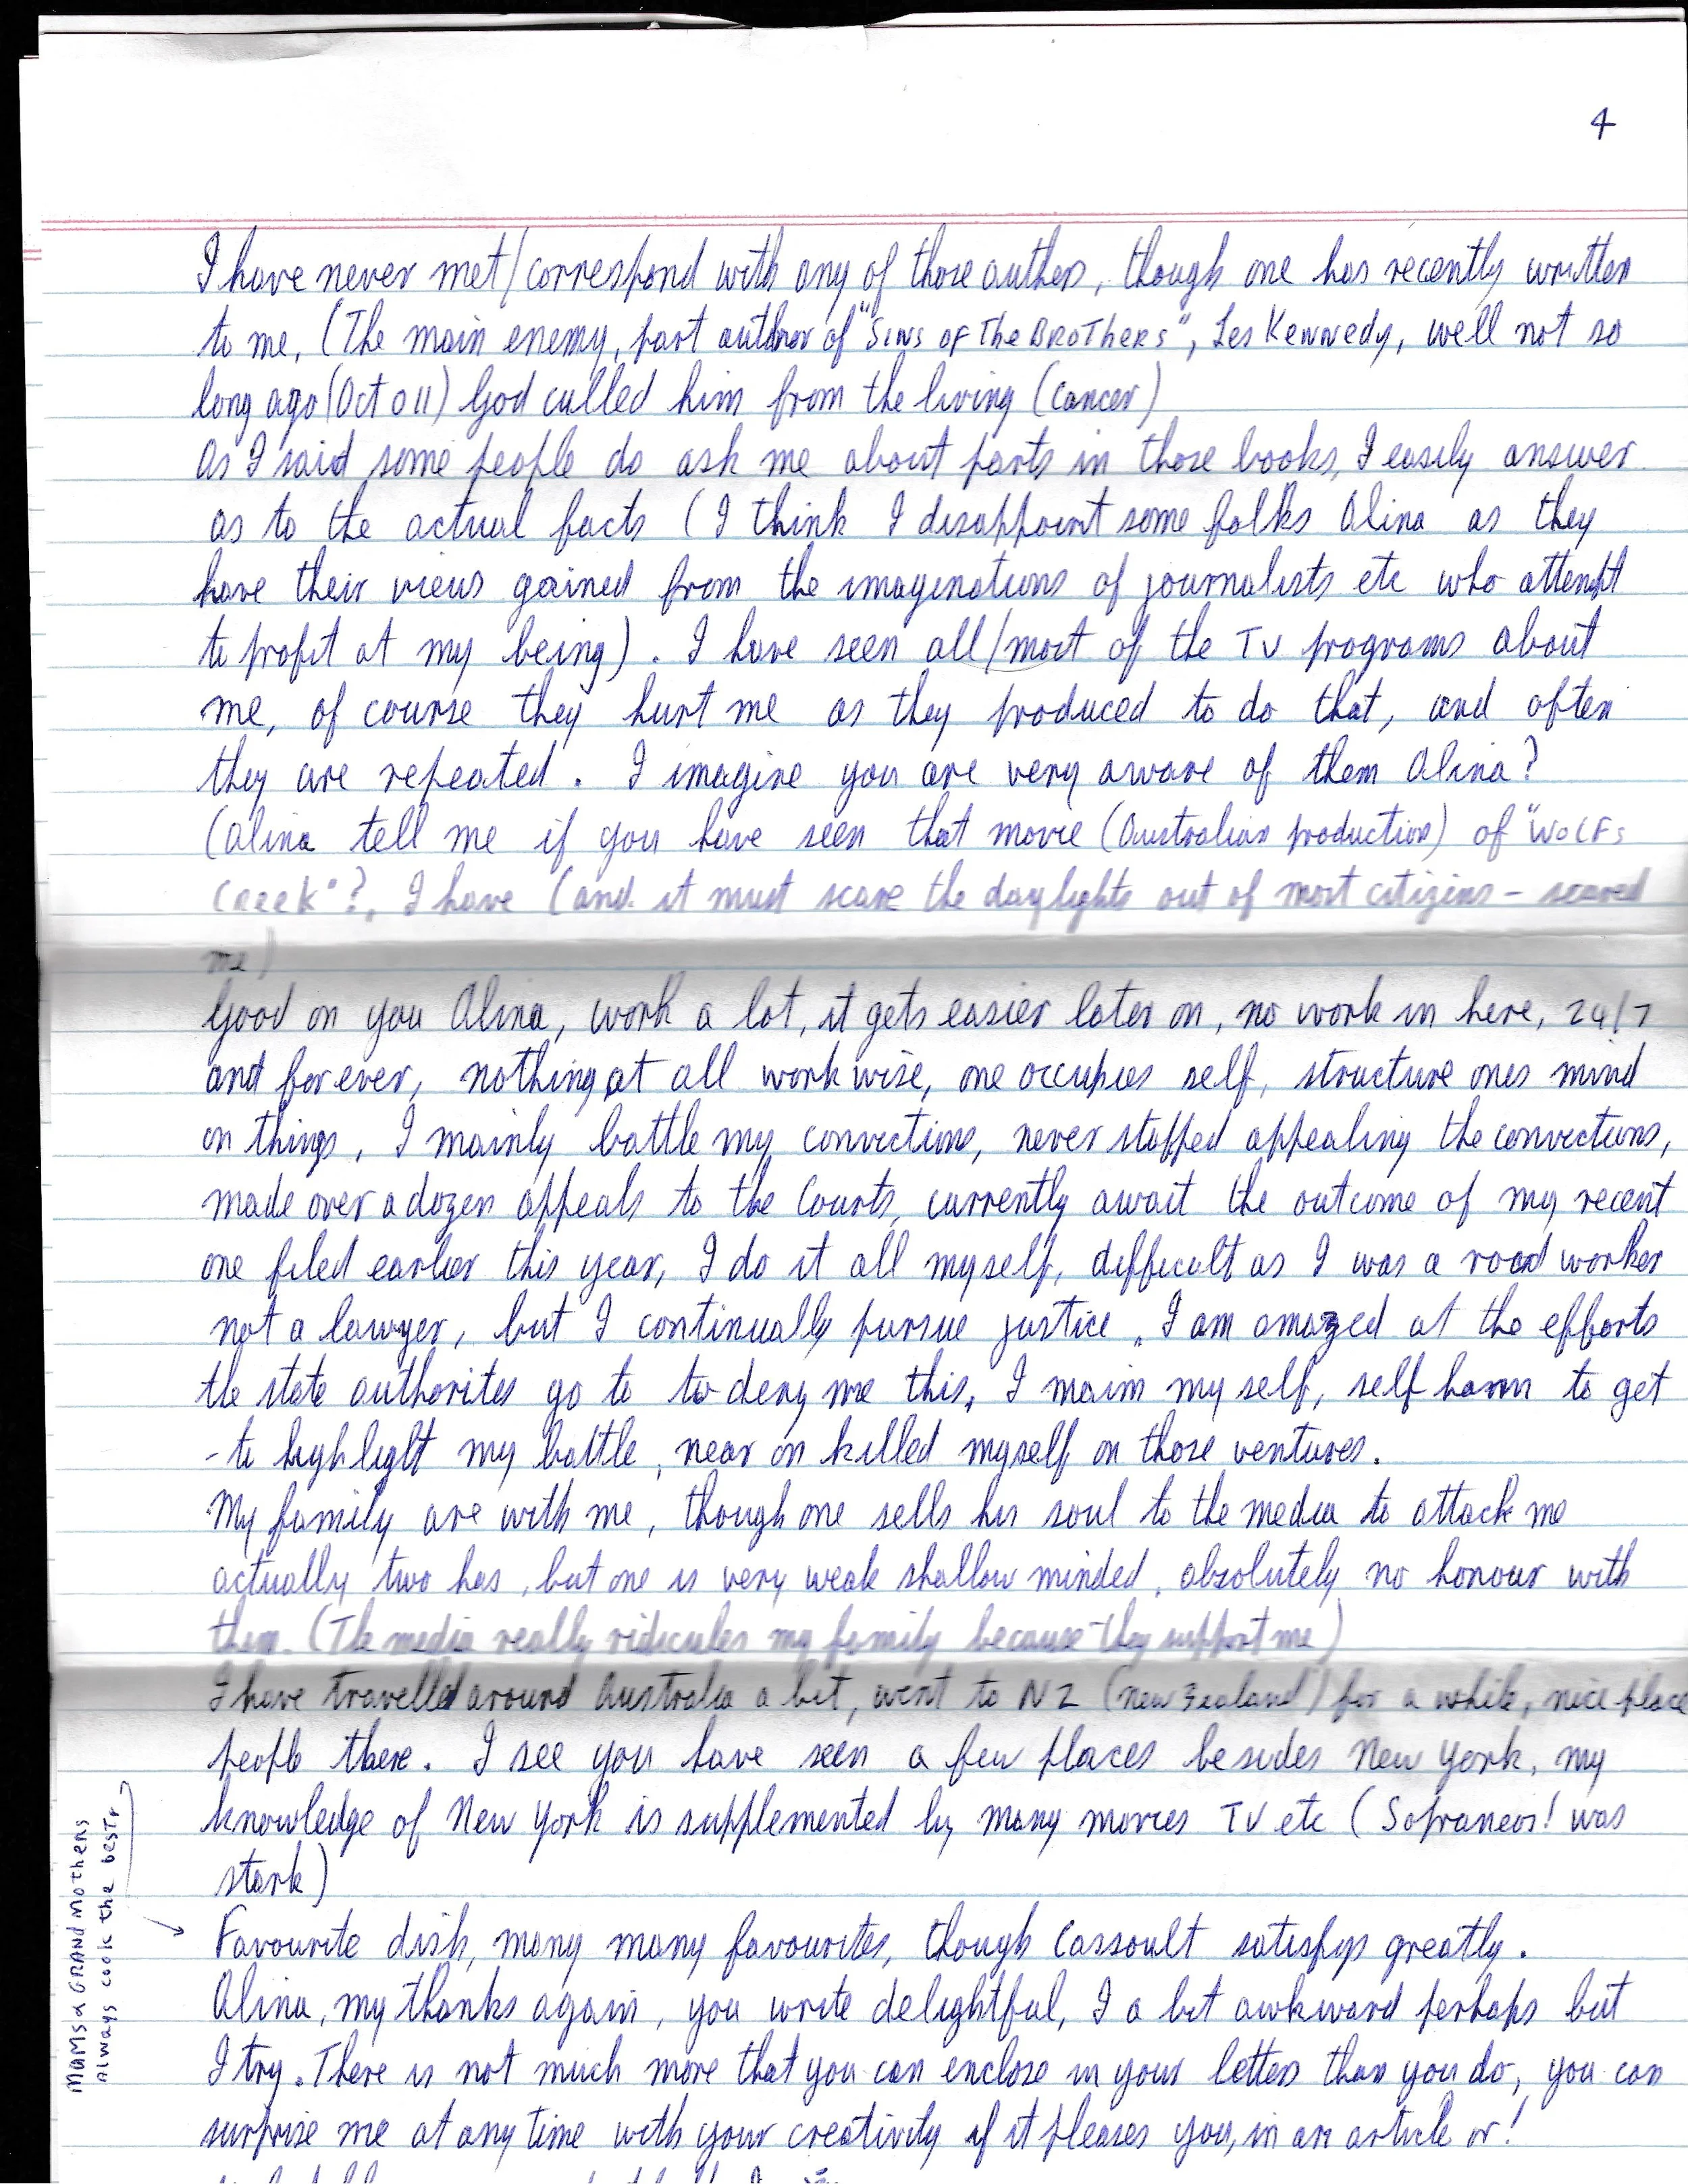 4
I have never met/correspond with any of those authors, though one has recently written
to me, (The main enemy, part author of "Sins of The Brothers", Les Kennedy, well not so
long ago (Oct 011) God culled him from the living (cancer)
As I said some people do ask me about parts in those books, I easily answer
as to the actual facts (I think I disappoint some folks Alina as they
have their views gained from the imaginations of journalists etc who attempt
to profit at my being). I have seen all/most of the TV programs about
me, of course they hurt me as they produced to do that, and often
they are repeated. I imagine you are very aware of them Alina?
(Alina tell me if you have seen that movie (Australian production) of "WOLFs
Creek"?, I have (and it must scare the daylights out of most citizens - scared
me)
Good on you Alina, work a lot, it gets easier later on, no work in here, 24/7
and for ever, nothing at all work wise, one occupies self, structure ones mind
on things, I mainly battle my convictions, never stopped appealing the convictions,
made over a dozen appeals to the Courts, currently await the outcome of my recent
one filed earlier this year, I do it all myself, difficult as I was a road worker
not a lawyer, but I continually pursue justice. I am amazed at the efforts
the state authorites go to to deny me this. I maim my self, self harm to get
- to highlight my battle, near on killed myself on those ventures.
My family are with me, though one sells his soul to the media to attack me
actually two has, but one is very weak shallow minded, absolutely no honour with
them. (The media really ridicules my family because they support me)
I have travelled around Australia a bit, went to NZ (new Zealand) for a while, nice place
people there. I see you have seen a few places besides New York, my
knowledge of New York is supplemented by many movies TV etc (Sopraneos! was
stark)
MUMS & GRAND MOTHERS
always cook the best
Favourite dish, many many favourites, though Cassoult satisfys greatly.
Alina, my thanks again, you write delightful, I a bit awkward perhaps but
I try. There is not much more that you can enclose in your letters than you do, you can
surprise me at any time with your creativity if it pleases you, in an article or!